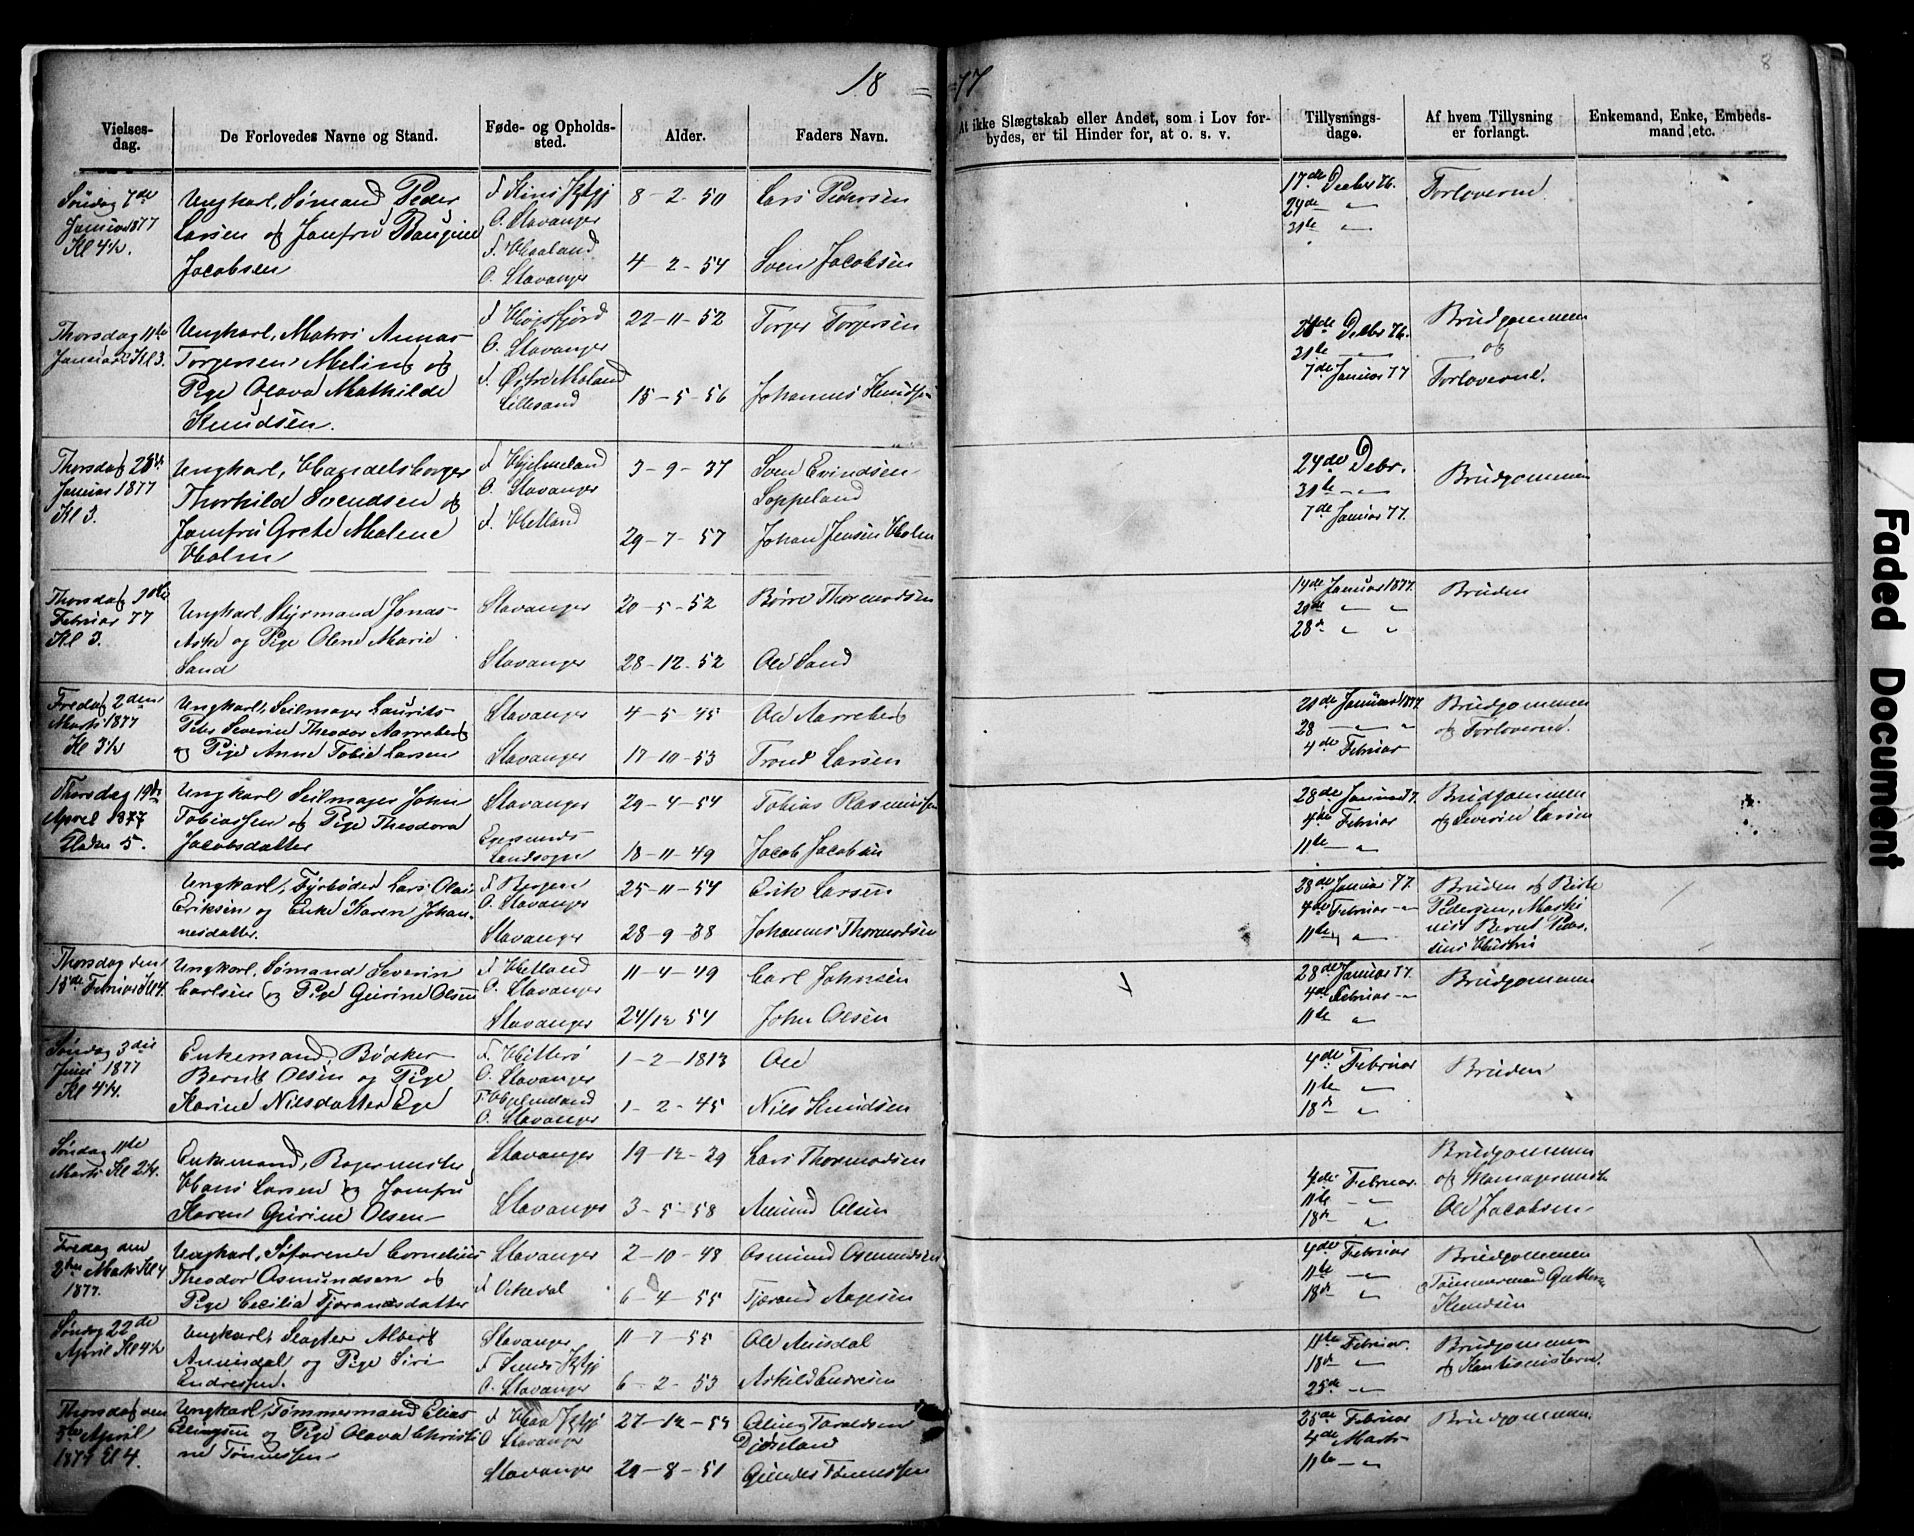 18 = 77
8
Vielses-
dag.
De Forlovedes Navne og Stand.
Føde- og Opholds-
sted.
Alder.
Faders Navn.
At ikke Slægtskab eller Andet, som i Lov for-
bydes, er til Hinder for, at o. s. v.
Tillysnings-
dage.
Af hvem Tillysning
er forlangt.
Enkemand, Enke, Embeds-
mand, etc.
Søndag 7de
Januar 1877
Kl 4½.
Ungkarl, Sømand Peder
Larsen og Jomfru Baugine
Jacobsen
O. Stavanger
O. Stavanger
8-2-50
4-2-54
Lars Pedersen
Sven Jacobsen
17de Decber 76.
24de — "
31te — "
Forloverne
Thorsdag 11te
Januar Kl 3.
Ungkarl, Matros Annas
Torgersen Meling og
Pige Olava Mathilde
Knudsen.
F Høgsfjord
O. Stavanger
F. Østre Moland
Lillesand
22-11-52
15-5-56
Torger Torgersen
Johannes Knudsen
Decbr 76.
31te —
7de Januar 77
Brudgommen
og
Forloverne.
Thorsdag
Januar 1877
Kl 3.
Ungkarl, Handelsborger
Thorkild Svendsen og
Jomfru Grete Malene
Holm
F Hjelmeland
O. Stavanger
F Hetland
3-9-37
29-7-57
Sven Evindsen
Soppeland
Johan Jensen Holm
24de Debr.
31te — "
7de Januar 77.
Brudgommen
Thorsdag
Februar 77
Kl 3.
Ungkarl, Styrmand Jonas
Aske og Pige Olene Marie
Sand
Stavanger
Stavanger
20-5-52
28-12-52
Børre Thormodsen
Ole Sand
14de Januar 1877.
21de " "
28de " "
Bruden
Fredag 2den
Marts 1877
Kl 3½
Ungkarl, Seilmager Laurits
Peter Severin Theodor Aarreberg
og Pige Anne Tobie Larsen
Stavanger
Stavanger
4-5-45
17-10-53
Ole Aarreberg
Trond Larsen
21de Januar 1877.
28 — " "
4de Februar
Brudgommen
og Forloverne.
Thorsdag 19de
April 1877
Klokken 5.
Ungkarl Seilmager John
Tobiassen og Pige Theodora
Jacobsdatter
Stavanger
Egersunds
Landsogn
29-4-54
18-11-49
Tobias Rasmussen
Jacob Jacobsen
28de Januar 77.
4de Februar
11te — "
Brudgommen
og Severin Larsen
Ungkarl, Fyrbøder Lars Olai
Eriksen og Enke Karen Johan-
nesdatter.
F Bergen
O. Stavanger
Stavanger
25-11-54
28-9-38
Erik Larsen
Johannes Thormodsen
28de Januar 77.
4de Februar — "
11te — "
Bruden og
Pedersen, Maski
nist Bernt Peder-
sens Hustru
Thorsdag den
15de Februar Kl 4.
Ungkarl, Sømand Severin
Carlsen og Pige Gurine Olsen
F Hetland
O. Stavanger
Stavanger
11-4-49
24/12 54
Carl Johnsen
John Olsen
28de Januar 77.
4de Februar — "
11te — "
Brudgommen
Søndag 3die
Juni 1877
Kl 4¼.
Enkemand, Bødker
Bernt Olsen og Pige
Karine Nilsdatter Ege
F. Hitterø
O. Stavanger
F Hjelmeland
O. Stavanger
1-2-1813
1-2-45
Ole
Nils Knudsen
4de Februar
11te — "
18de — "
Bruden
Søndag 11te
Marts Kl 2¼.
Enkemand, Bagermester
Hans Larsen og Jomfru
Karen Gurine Olsen
Stavanger
Stavanger
19-12-29
3-5-58
Lars Thormodsen
Amund Olsen
4de Februar.
11te — "
18de — "
Brudgommen
og Skomagermester
Ole Jacobsen
Fredag den
2den Marts Kl 4
1877.
Ungkarl, Søfarende Cornelius
Theodor Osmundsen og
Pige Cecilia Tjorandsdatter
Stavanger
F Vikedal
2-10-48
6-4-55
Osmund Osmundsen
Tjorand Aagesen
4de Februar
11te — "
18de — "
Brudgommen
Tømmermand
Knudsen
Søndag 22de
April Kl 4½
Ungkarl, Slagter Albert
Annisdal og Pige Siri
Endresen.
Stavanger
O. Stavanger
11-7-55
6-2-53
Ole Anisdal
Askild Endresen
11te Februar.
18de — "
25de — "
Brudgommen
Thorsdag den
5te April
1877 Kl 4.
Ungkarl, Tømmermand Elias
Elingsen og Pige Olava Christi
ne Tønnessen
O Stavanger
Stavanger
27-12-54
29-8-51
Eling Taraldsen
Gunder Tønnessen
25de Februar
4de Marts
11te — "
Brudgommen.
Faded Document